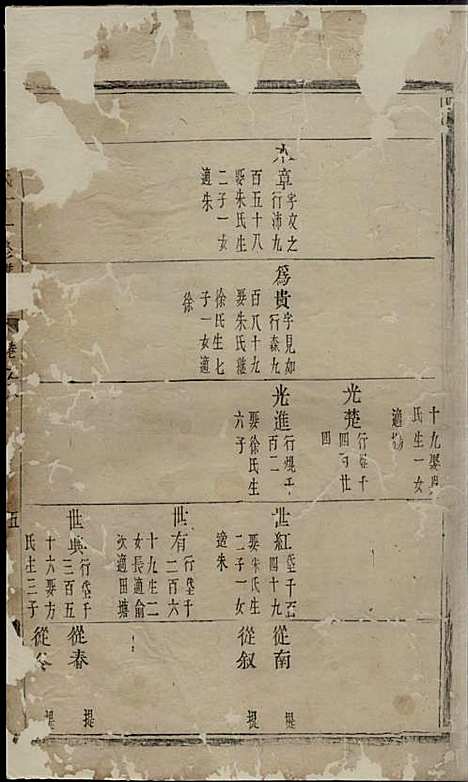 本章
字攻之
行沛九
百五十八
娶朱氏生
二子一女
適朱
為貴
字見如
行森九
百八十九
娶朱氏継
徐氏生七
子一女適
徐
十九娶
氏生一女
適
光楚
行 千
四 廿
四
光進
行焜千
百二
娶徐氏生
六子
世紅
垈千五
四十九
娶宋氏生
二子一女
適朱
世有
行垈千
二百六
十九生二
女長適俞
次適田塘
世典
行垈千
三百五
十六娶方
氏生三子
從南
提
從叙
提
從春
提
從
提
五